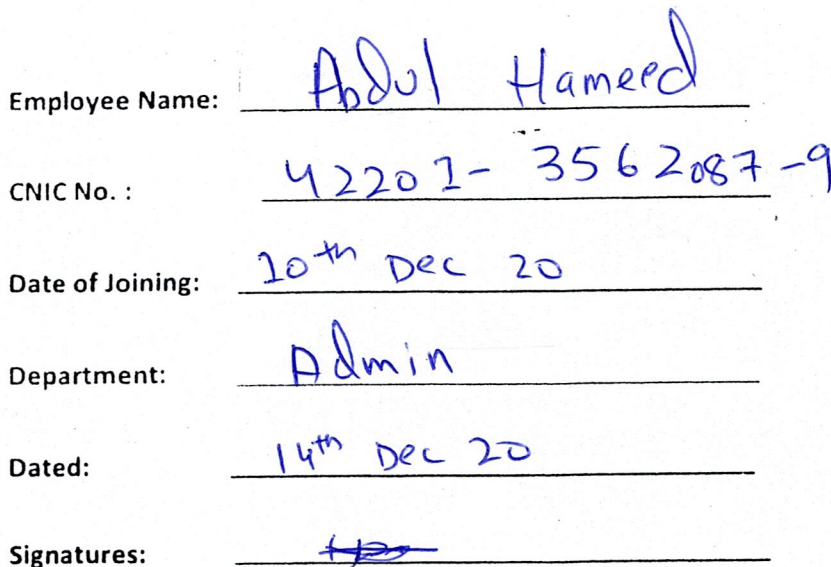 Employee Name: Abdul Hameed
CNIC No. : 42201- 3562087-9
Date of Joining: 10th Dec 20
Department: Admin
Dated: 14th Dec 20
Signatures: